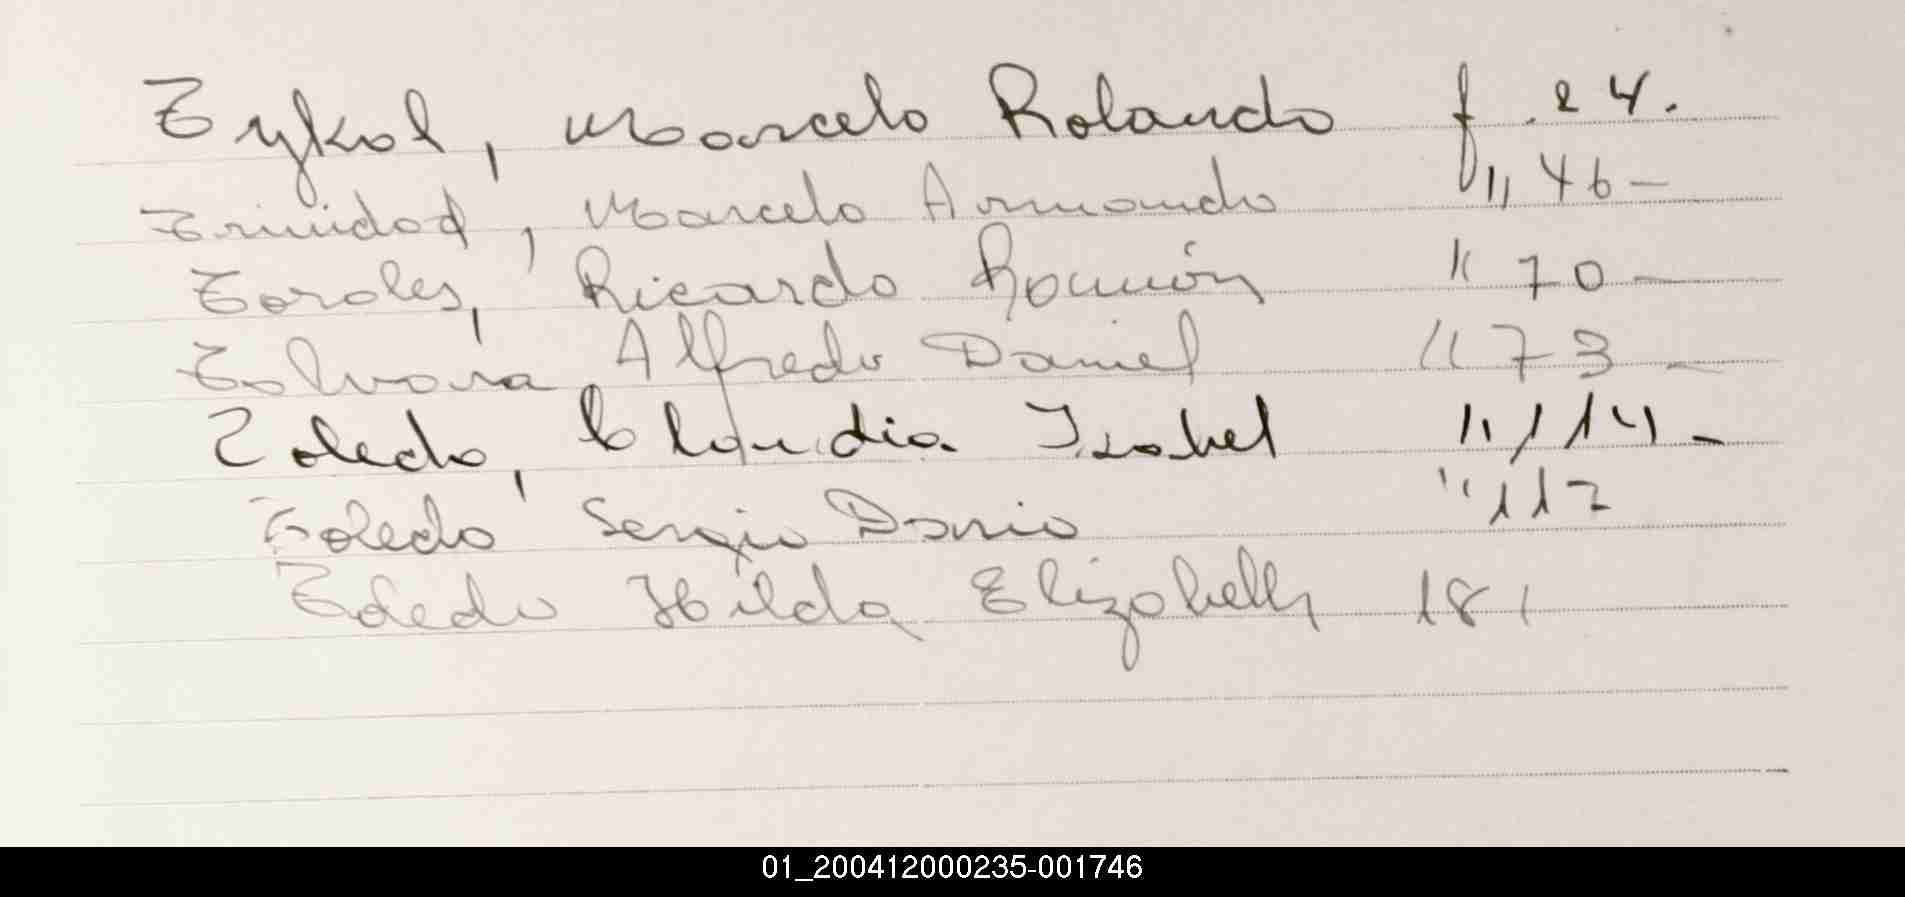 Tykol, Marcelo Rolando f. 24.
Trinidad, Marcelo Armando " 46 -
Toroles, Ricardo Ramón " 70 -
Alfredo Daniel " 73 -
Toledo, Claudia Isabel " 114 -
Toledo Sergio Dario " 117
Toledo Hilda Elizabeth 181
01_200412000235-001746